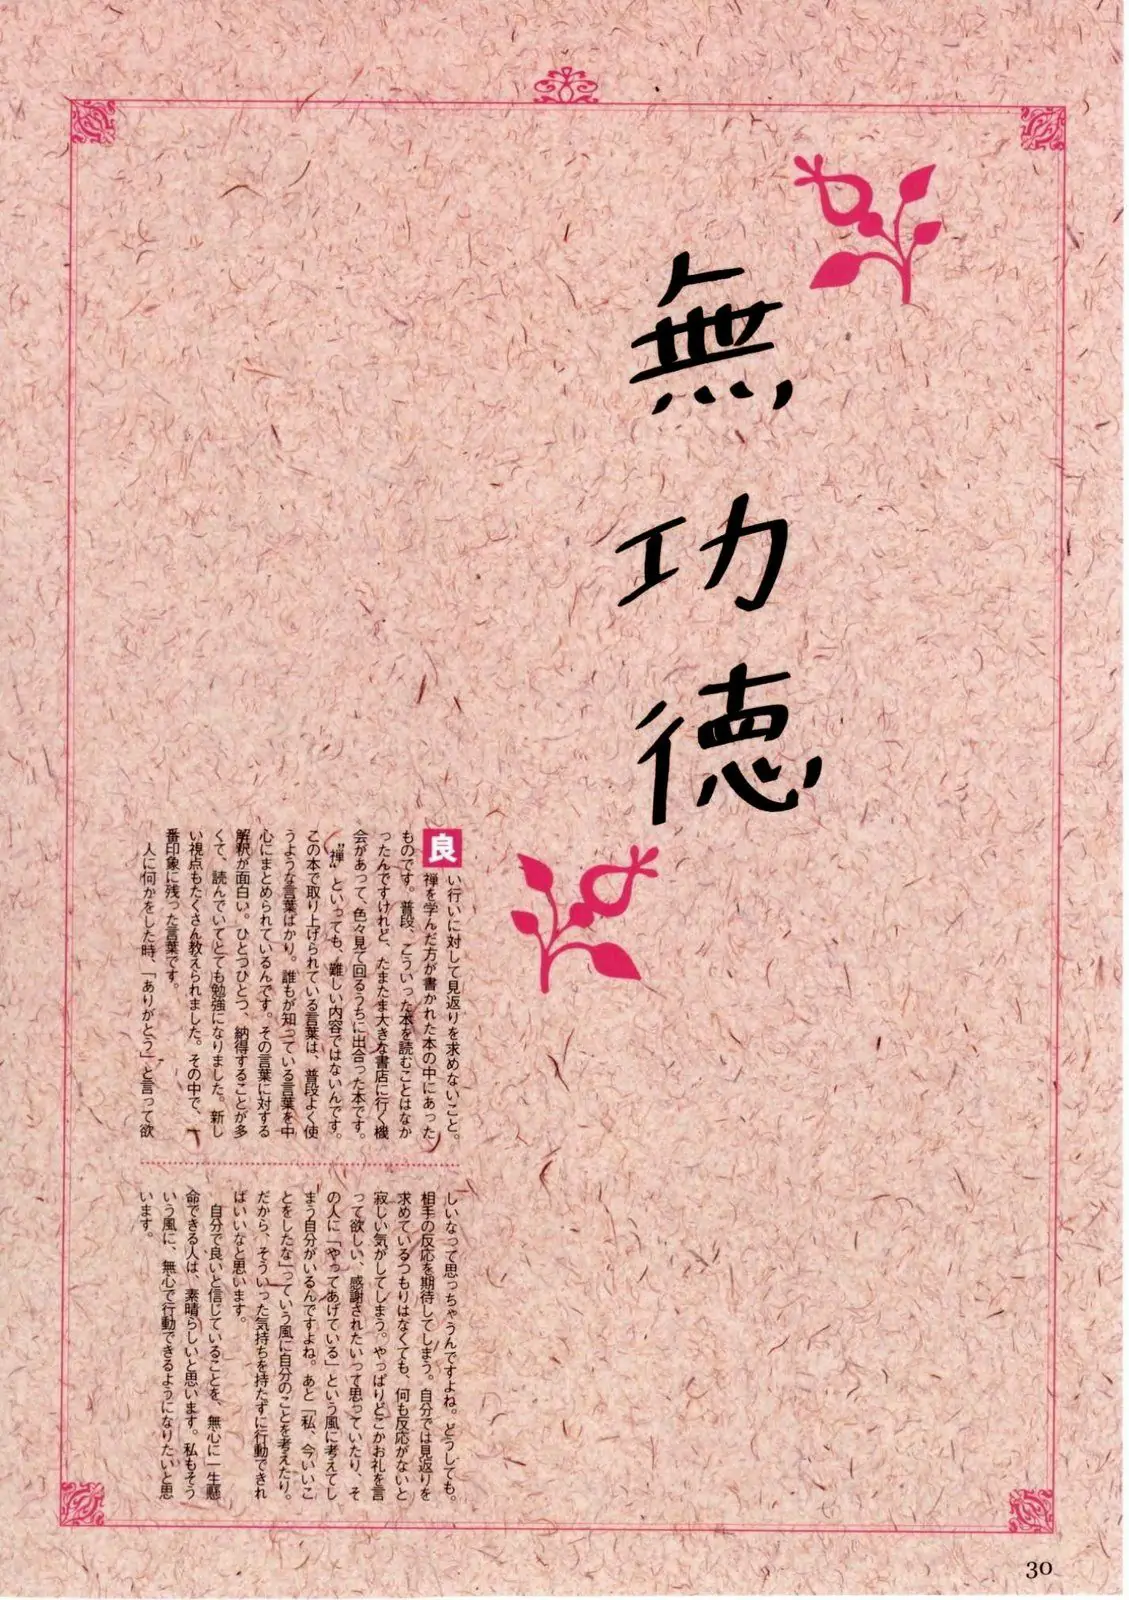 無功徳
良い行いに対して見返りを求めないこと。
禅を学んだ方が書かれた本の中にあった
ものです。普段、こういった本を読むことはなか
ったんですけれど、たまたま大きな書店に行く機
会があって、色々見て回るうちに出合った本です。
“禅”といっても、難しい内容ではないんです。
この本で取り上げられている言葉は、普段よく使
うような言葉ばかり。誰もが知っている言葉を中
心にまとめられているんです。その言葉に対する
解釈が面白い。ひとつひとつ、納得することが多
くて、読んでいてとても勉強になりました。新し
い視点もたくさん教えられました。その中で、一
番印象に残った言葉です。
人に何かをした時、「ありがとう」と言って欲
しいなって思っちゃうんですよね。どうしても。
相手の反応を期待してしまう。自分では見返りを
求めているつもりはなくても、何も反応がないと
寂しい気がしてしまう。やっぱりどこかお礼を言
って欲しい、感謝されたいって思っていたり、そ
の人に「やってあげている」という風に考えてし
まう自分がいるんですよね。あと「私、今いいこ
とをしたな」っていう風に自分のことを考えたり。
だから、そういった気持ちを持たずに行動できれ
ばいいなと思います。
自分で良いと信じていることを、無心に一生懸
命できる人は、素晴らしいと思います。私もそう
いう風に、無心で行動できるようになりたいと思
います。
30